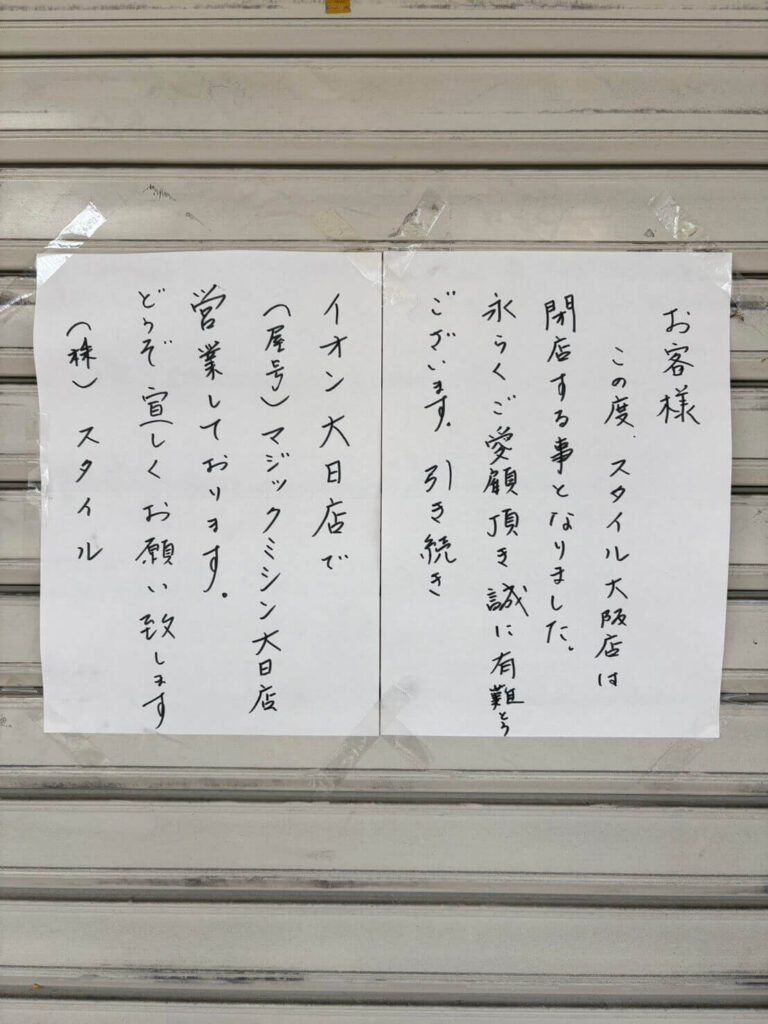 お客様
この度、スタイル大阪店は
閉店する事となりました。
永らくご愛顧頂き誠に有難とう
ございます。引き続き
イオン大日店で
(屋号)マジックミシン大日店
営業しております。
どうぞ宜しくお願い致します
(株)スタイル